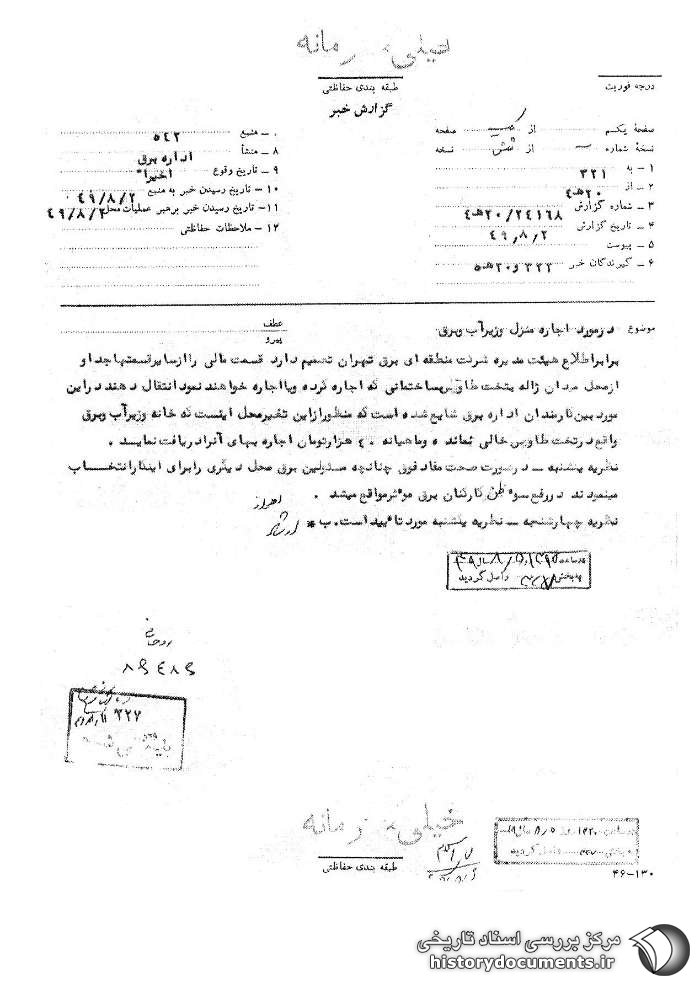 خیلی محرمانه
طبقه بندی حفاظتی
گزارش خبر
درجه فوریت
صفحه یکم از یک صفحه
نسخه شماره از شش نسخه
۱ – به ۳۲۱
۲ – از ۲۰ه‍۴
۳ – شماره گزارش ۲۰/۲۴۱۶۸ه‍۴
۴ – تاریخ گزارش ۴۹٫۸٫۲
۵ – پیوست
۶ – گیرندگان خبر ۳۲۲ و ۲۰ه‍۵
۷ – منبع ۵۴۲
۸ – منشأ اداره برق
۹ – تاریخ وقوع اخیرا"
۱۰ – تاریخ رسیدن خبر به منبع ۴۹/۸/۲
۱۱ – تاریخ رسیدن خبر برهبر عملیات محل ۴۹/۸/۲
۱۲ – ملاحظات حفاظتی
موضوع درمورد اجاره منزل وزیرآب وبرق
عطف
پیرو
برابراطلاع هیئت مدیره شرکت منطقه ای برق تهران تصمیم دارد قسمت مالی راازسایرقسمتهاجدا و
ازمحل میدان ژاله بتخت طاوس بساختمانی که اجاره کرده ویااجاره خواهند نمود انتقال دهند دراین
مورد بین کارمندان اداره برق شایع شده است که منظورازاین تغییرمحل اینست که خانه وزیرآب وبرق
واقع درتخت طاوس خالی نماند ه وماهیانه ۴۰ هزارتومان اجاره بهای آنرادریافت نمایند .
نظریه یکشنبه – درصورت صحت مفاد فوق چنانچه مسئولین برق محل دیگری رابرای اینکارانتخاب
مینمودند دررفع سو' ظن کارکنان برق موثرواقع میشد .
نظریه چهارشنبه – نظریه یکشنبه مورد تا'یید است. ب *
واصل گردید
۸۹۴۸۹
۳۲۷
خیلی محرمانه
طبقه بندی حفاظتی
واصل گردید
۴۶-۱۳۰
مرکز بررسی اسناد تاریخی
historydocuments.ir